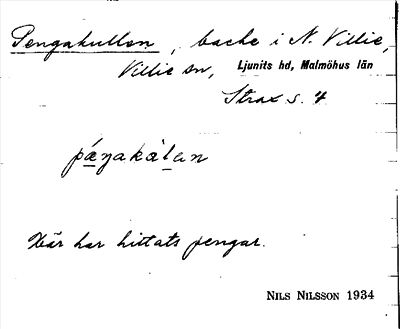 Pengakullen, backe i N. Villie,
Villie sn, Ljunits hd, Malmöhus län
Strax s. 4
pǽŋakàlan
Här har hittats pengar.
NILS NILSSON 1934